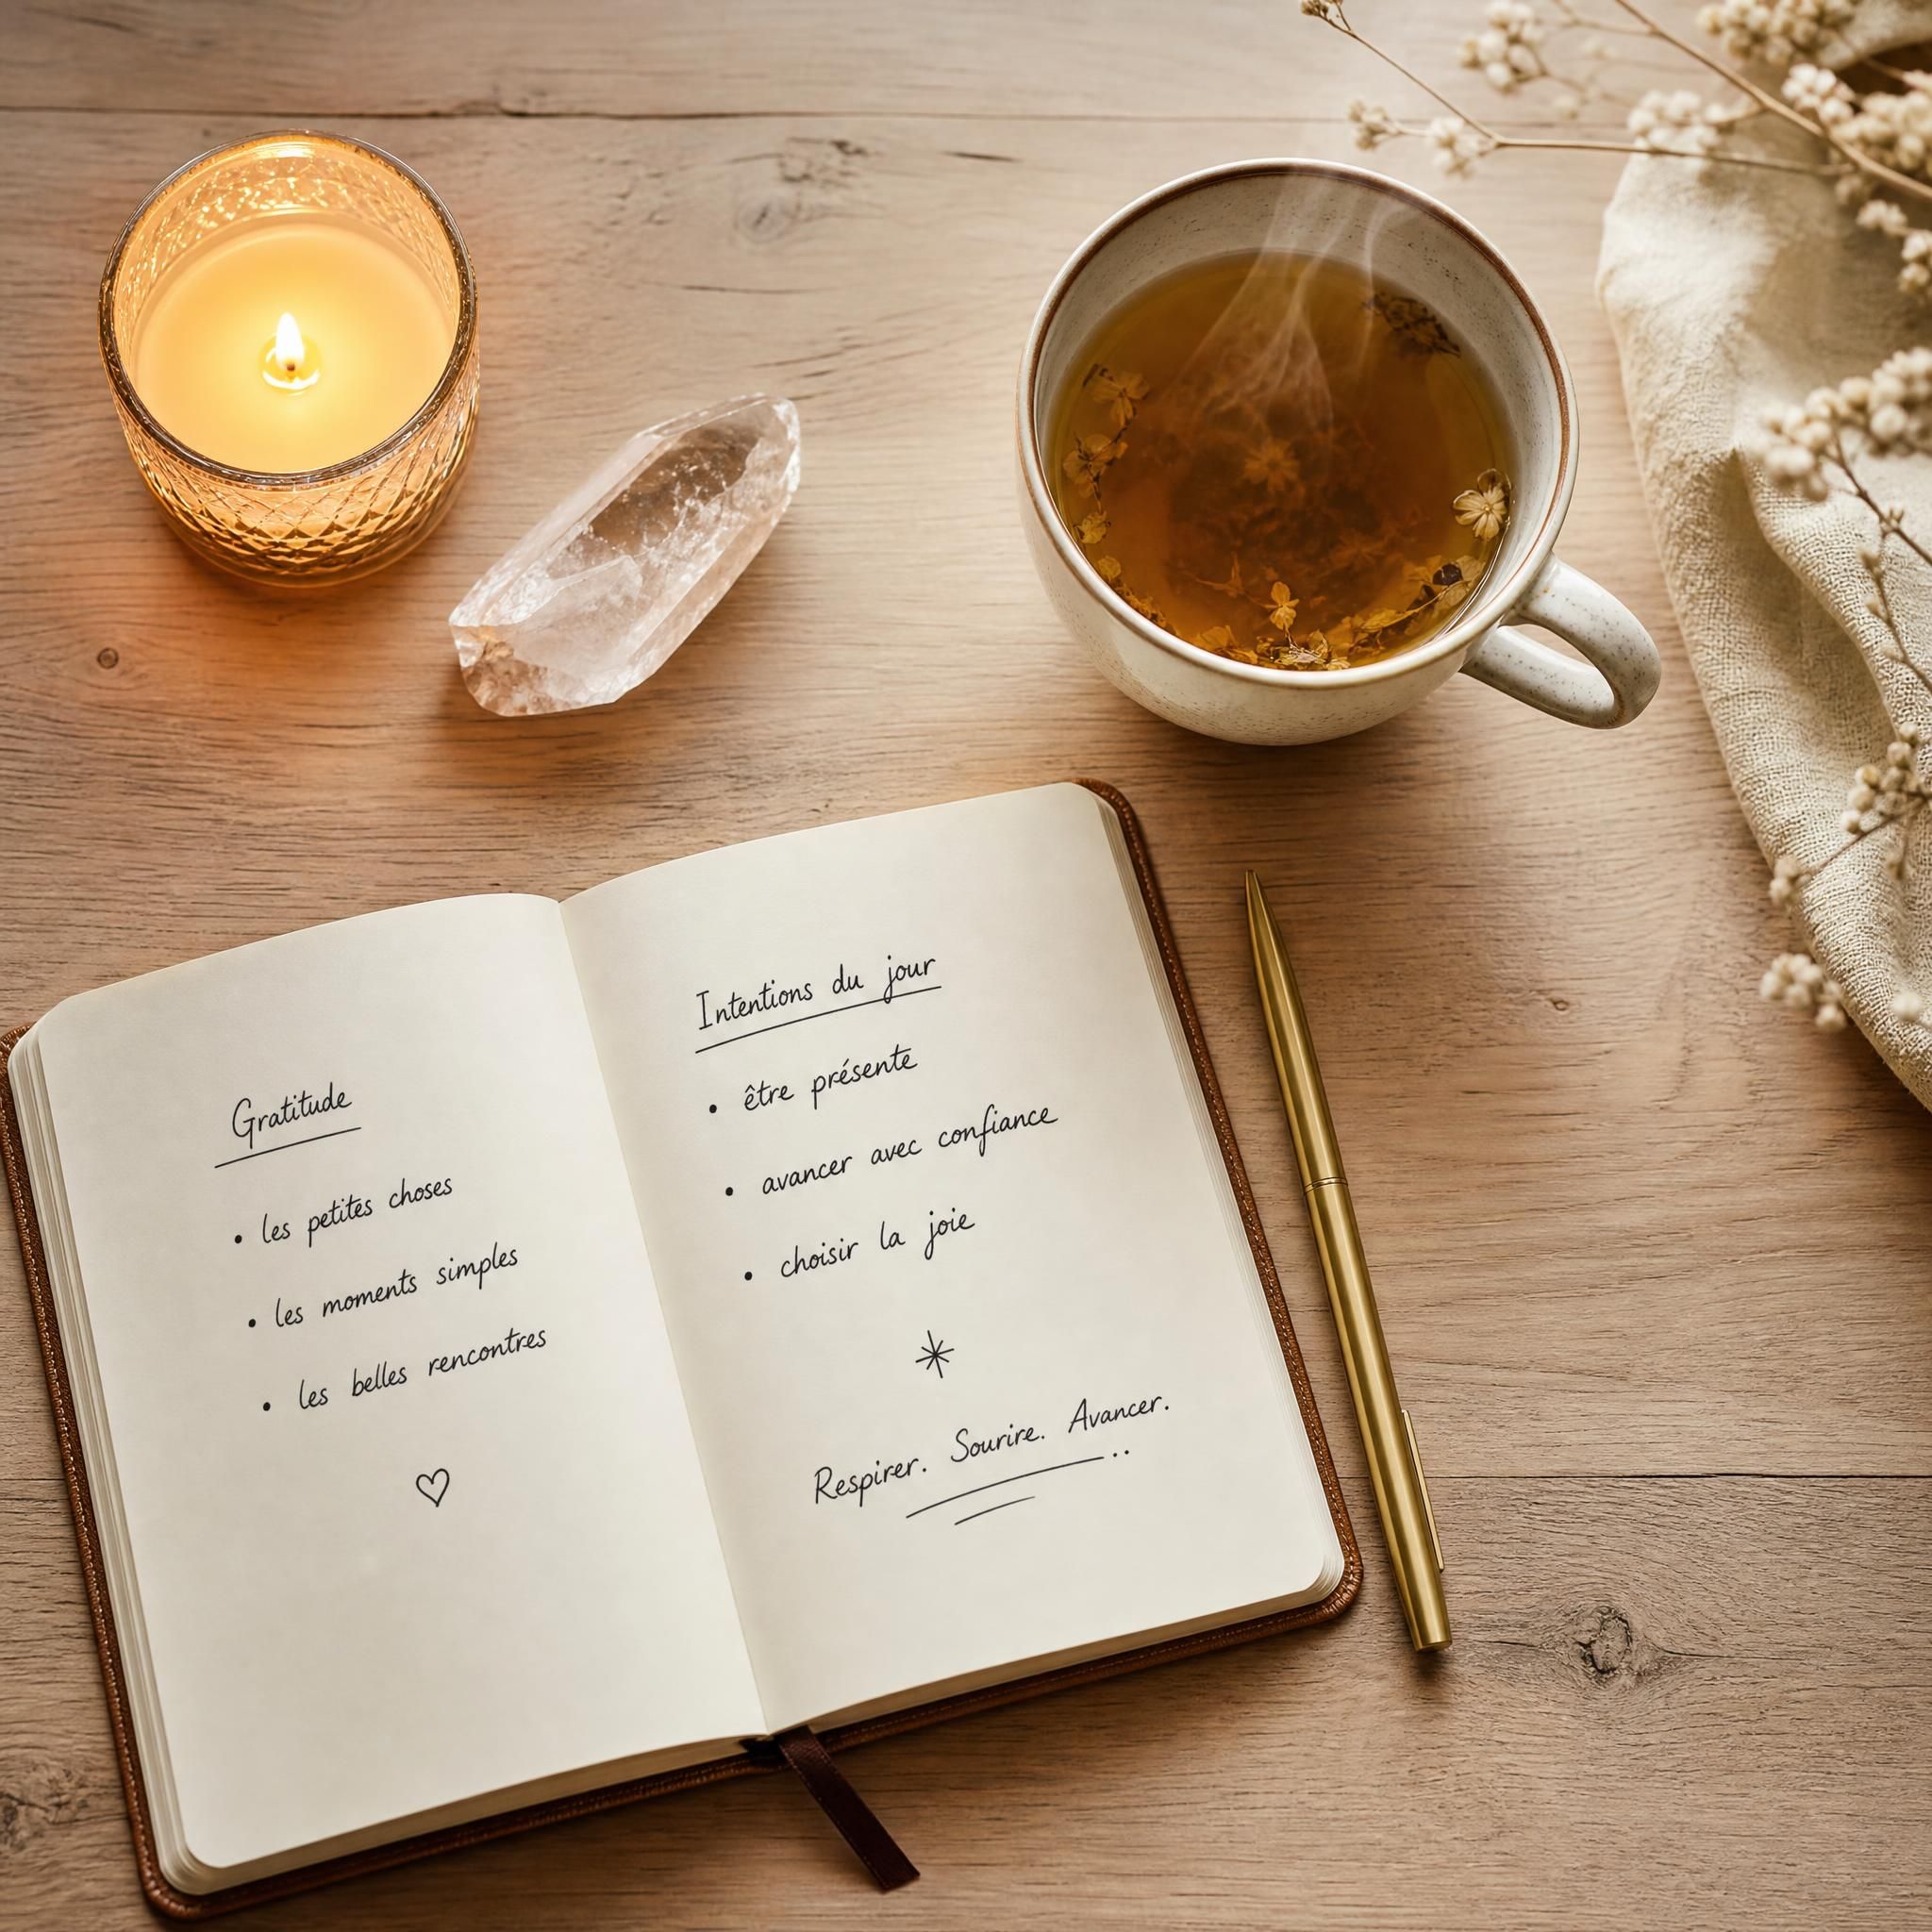 Gratitude
• les petites choses
• les moments simples
• les belles rencontres
Intentions du jour
• être présente
• avancer avec confiance
• choisir la joie
Respirer. Sourire. Avancer.